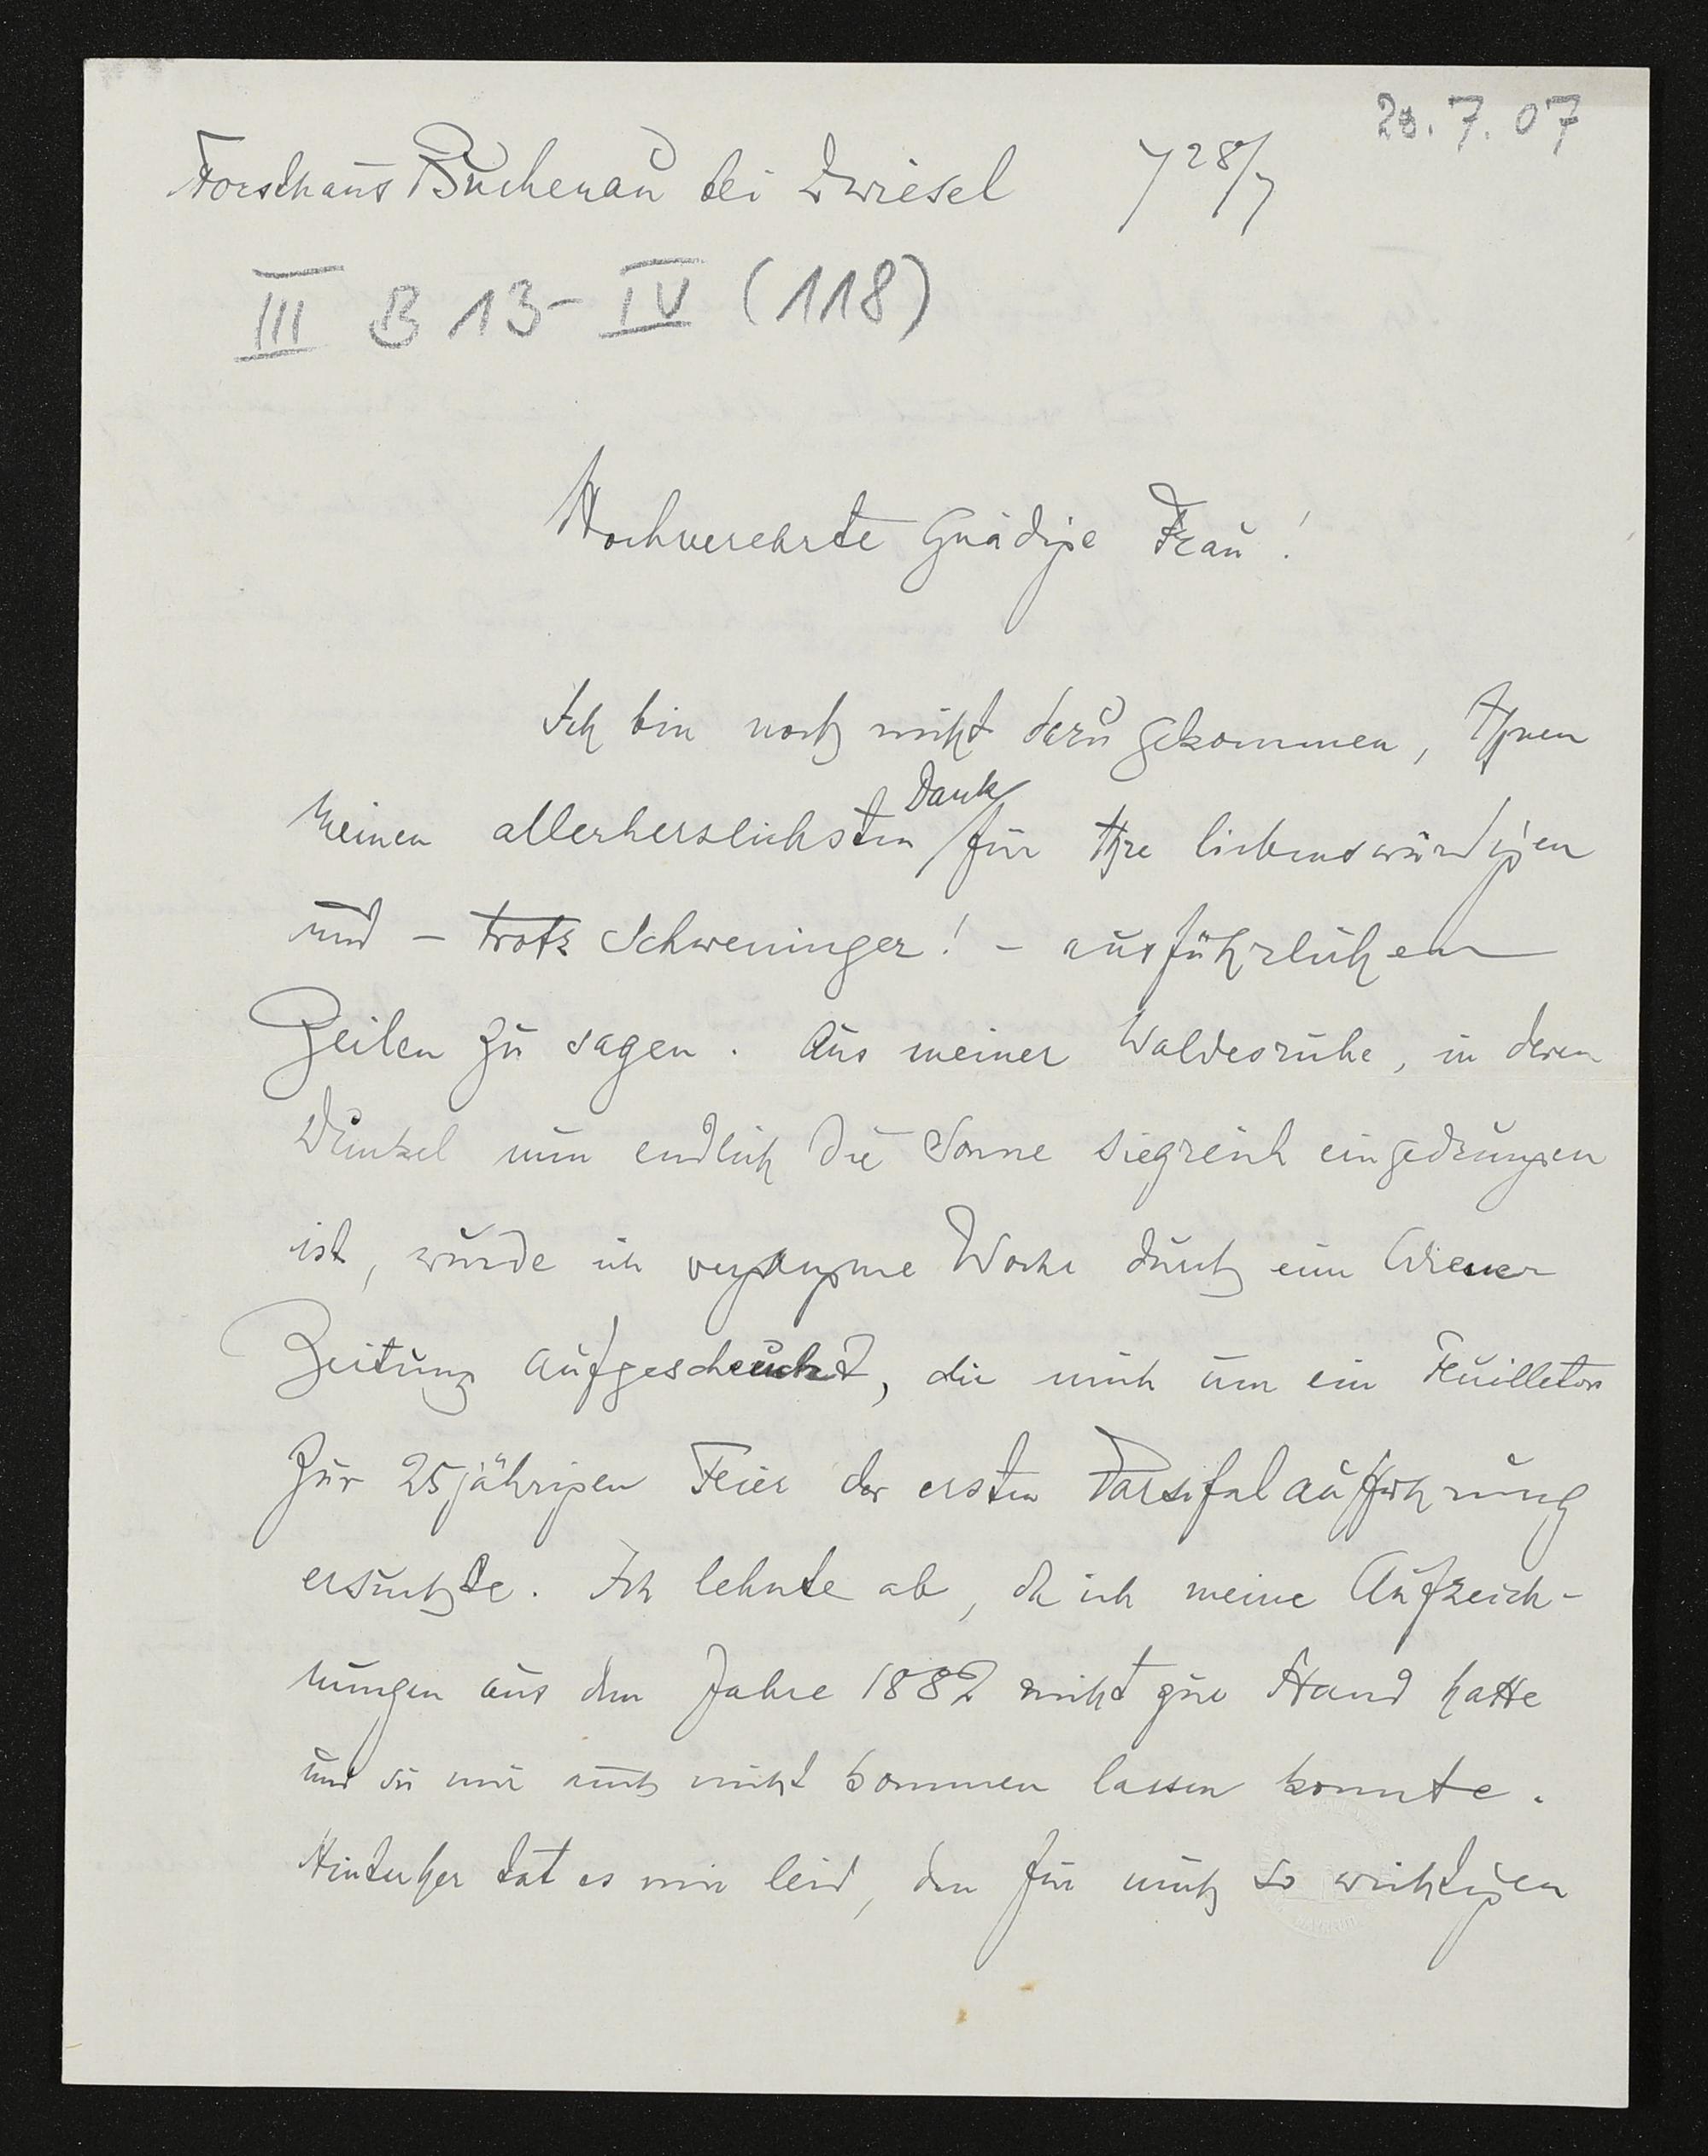 28.7.07
Forsthaus Buchenau bei Zwiesel 7 28/7
III B 13 - IV (118)
Hochverehrte Gnädige Frau!
Ich bin noch nicht dazu gekommen, Ihnen
meinen allerherzlichsten Dank für Ihre liebenswürdigen
und – trotz Schweninger! – ausführlichen
Zeilen zu sagen. Aus meiner Waldesruhe, in deren
Dunkel nun endlich die Sonne siegreich eingedrungen
ist, wurde ich vergangene Woche durch eine Wiener
Zeitung aufgescheucht, die mich um ein Feuilleton
zur 25jährigen Feier der ersten Parsifalaufführung
ersuchte. Ich lehnte ab, da ich meine Aufzeich-
nungen aus dem Jahre 1882 nicht zur Hand hatte
und sie mir auch nicht kommen lassen konnte.
Hinterher tat es mir leid, den für mich so wichtigen